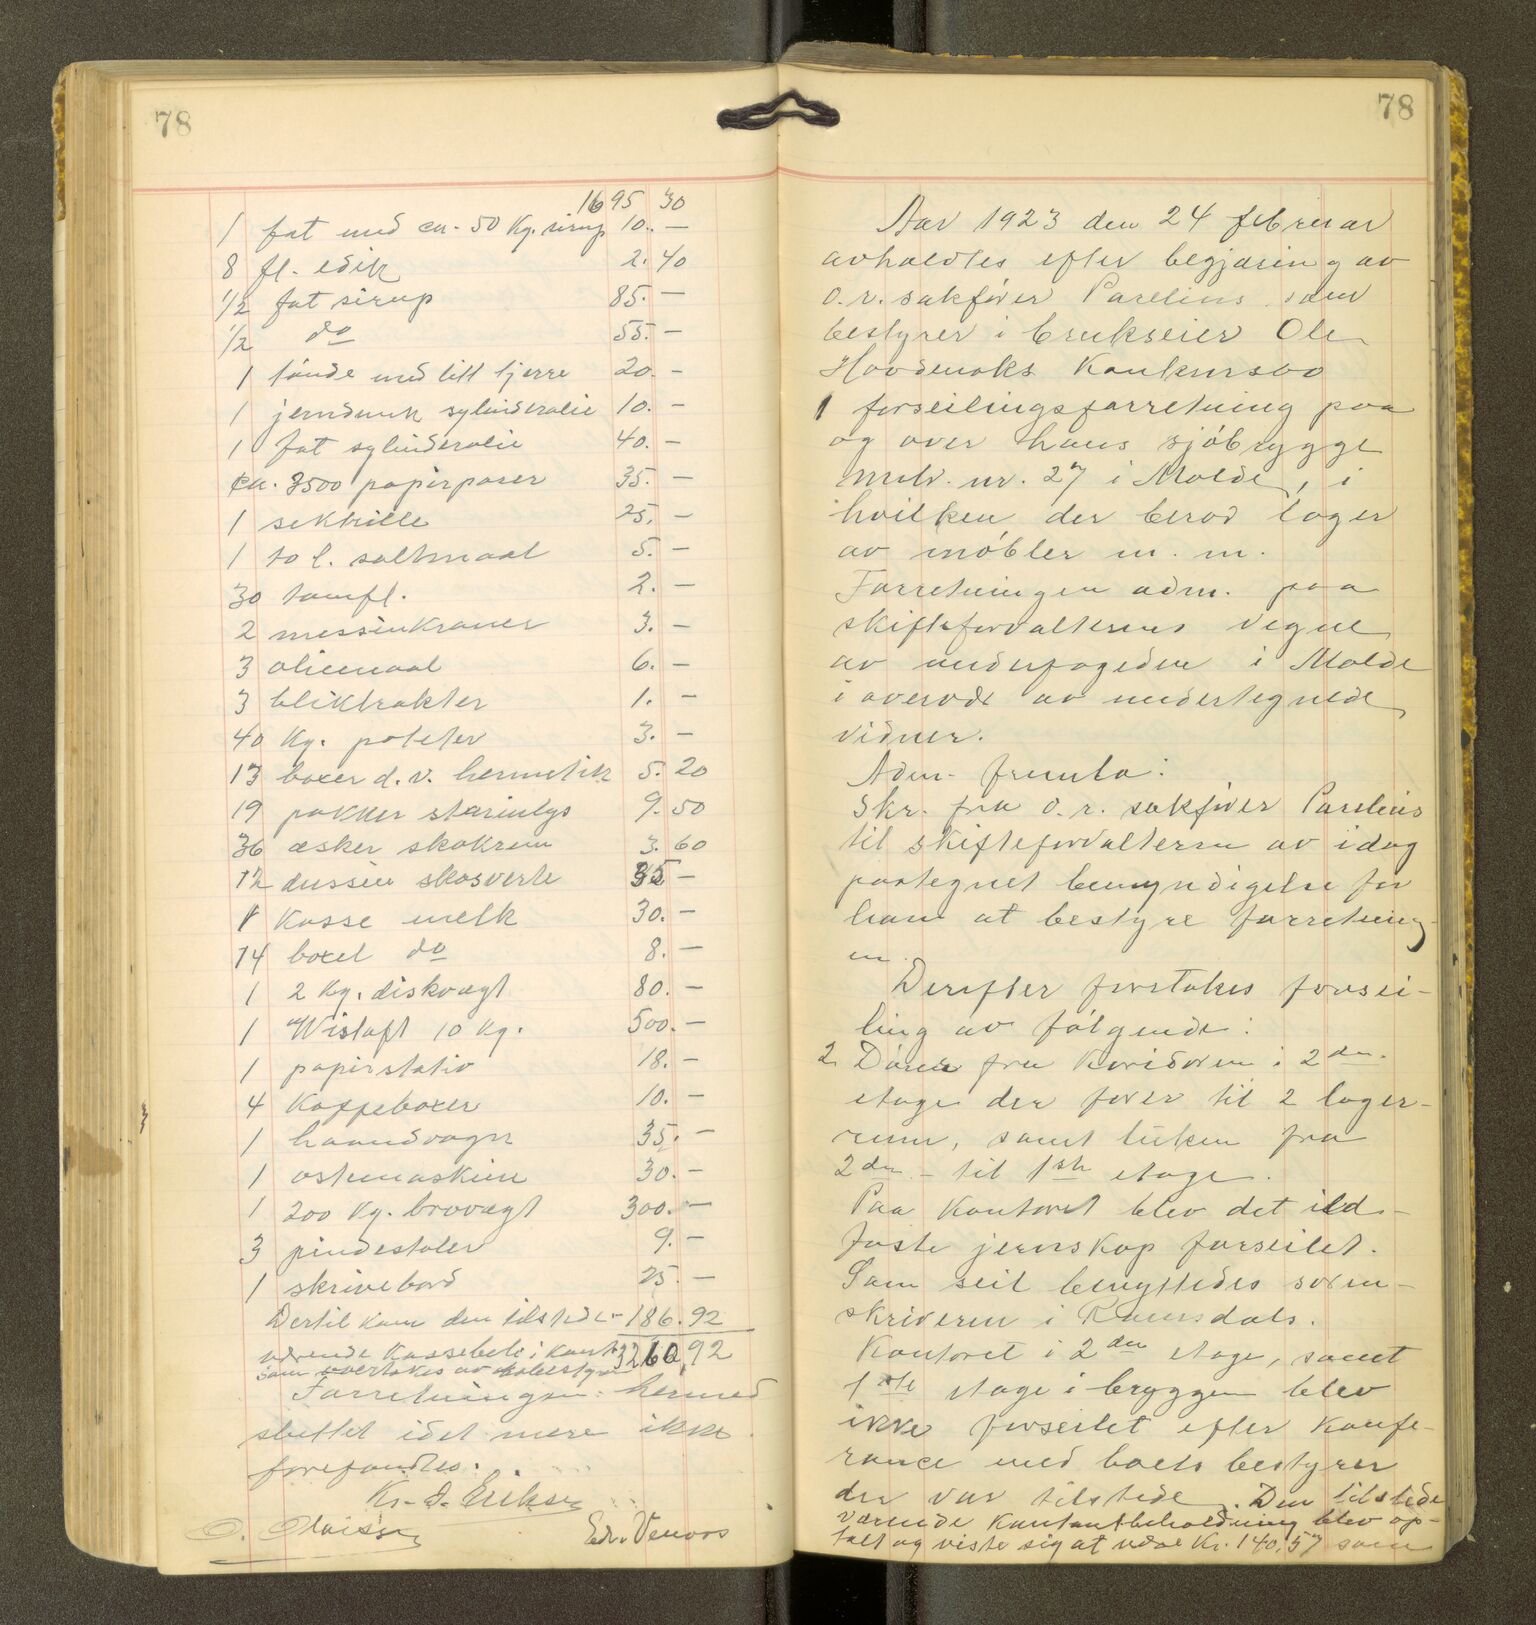 78
1695 30
1 fat med ca. 50 Kg. sirup 10. —
8 fl. edik 2. 40
1/2 fat sirup 85. —
1/2 do 55. —
1 tønde med litt tjerre 20. —
1 jerndunk sylinderolie 10. —
1 fat sylinderolie 40. —
ca. 3500 papirposer 35. —
1 sektrille 25. —
1 10 l. saltmaal 5. —
30 tomfl. 2. —
2 messinkraner 3. —
3 oliemaal 6. —
3 bliktrakter 1. —
40 Kg. poteter 3. —
13 boxer d. v. hermetik 5. 20
19 pakker stearinlys 9. 50
36 æsker skokrem 3. 60
12 dussin skosverte 35 —
1 Kasse melk 30. —
14 boxel do 8. —
1 2 Kg. diskvægt 80. —
1 Wistoft 10 Kg. 500. —
1 papirstativ 18. —
4 Kaffeboxer 10. —
1 haandvogn 35. —
1 ostemaskin 30. —
1 200 Kg. brovægt 300. —
3 pindestoler 9. —
1 skrivebord 25. —
Dertil kom den tilstede- 186. 92
værende Kassebeh. i kont. 3260,92
som overtokes av bobestyr
Forretningen hermed
sluttet idet mere ikke
forefandtes.
Kr. J. Eriksen
O. Olaissen Edv. Venaas
78
Aar 1923 den 24 februar
avholdtes efter begjæring av
o. r. sakfører Parelius som
bestyrer i brukseier Ole
Hovdenaks Konkursbo
1 forseilingsforretning paa
og over hans sjøbrygge
matr. nr. 27 i Molde, i
hvilken der berod lager
av møbler m. m.
Forretningen adm. paa
skifteforvalterens vegne
av underfogeden i Molde
i overvær av undertegnede
vidner.
Adm. fremla:
Skr. fra o. r. sakfører Parelius
til skifteforvalteren av idag
paategnet bemyndigelse for
ham at bestyre forretning-
en.
Derefter foretokes forsei-
ling av følgende:
2 Døren fra Koridoren i 2den
etage der fører til 2 lager-
rum, samt luken fra
2den - til 1ste etage.
Paa Kontoret blev det ild-
faste jernskap forseilet.
Som seil benyttedes soren-
skriveren i Romsdals.
Kontoret i 2den etage, samt
1ste etage i bryggen blev
ikke forseilet efter Konfe-
rance med boets bestyrer
der var tilstede. Den tilstede
værende Kontantbeholdning blev op-
talt og viste sig at være Kr. 140,57 som